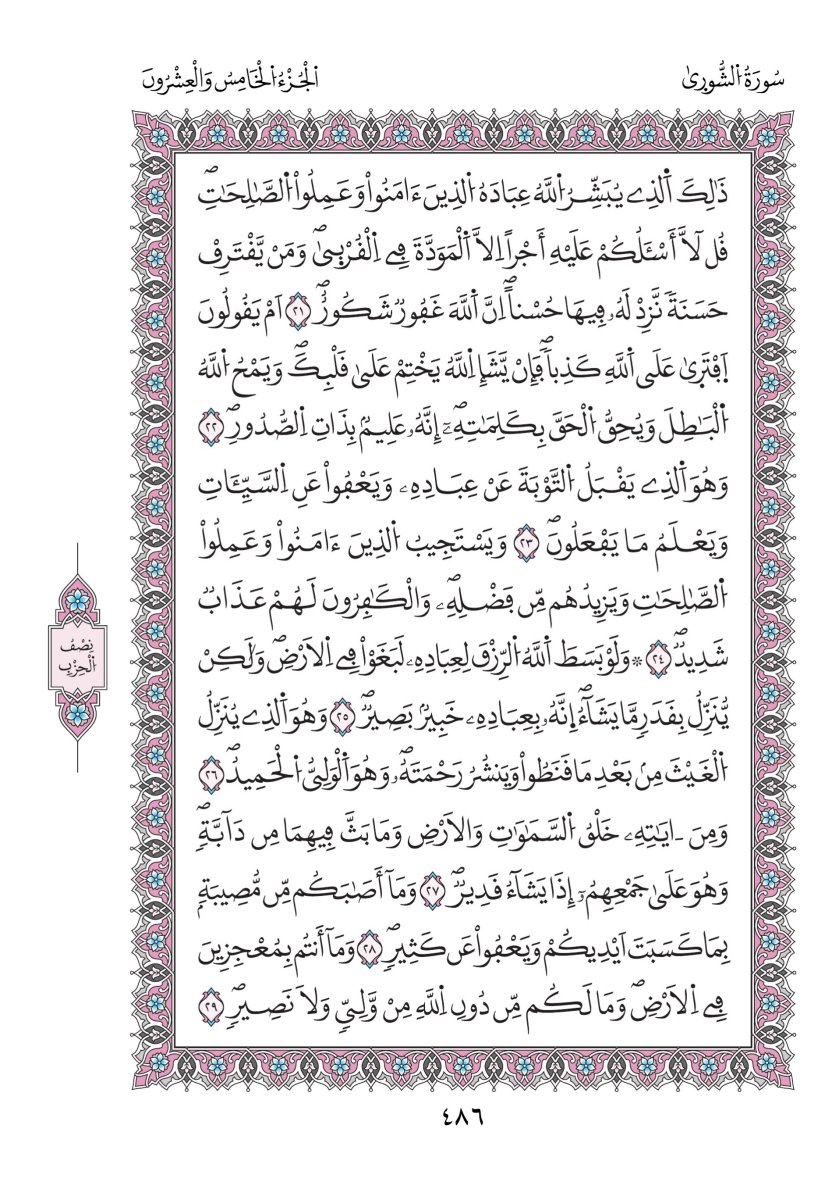 سُورَةُ اُ۬لشُّورۭيٰ
اَ۬لْجُزْءُ اُ۬لْخَامِسُ وَالْعِشْرُونَ
ذَٰلِكَ اَ۬لذِے يُبَشِّرُ اُ۬للَّهُ عِبَادَهُ اُ۬لذِينَ ءَامَنُواْ وَعَمِلُواْ اُ۬لصَّٰلِحَٰتِۖ
قُل لَّآ أَسْـَٔلُكُمْ عَلَيْهِ أَجْراً اِلَّا اَ۬لْمَوَدَّةَ فِے اِ۬لْقُرْب۪يٰۖ وَمَنْ يَّقْتَرِفْ
حَسَنَةٗ نَّزِدْ لَهُۥ فِيهَا حُسْناًۖ اِنَّ اَ۬للَّهَ غَفُورٞ شَكُورٌۖ ٢١ اَمْ يَقُولُونَ
اَ۪فْتَر۪يٰ عَلَي اَ۬للَّهِ كَذِباٗۖ فَإِنْ يَّشَإِ اِ۬للَّهُ يَخْتِمْ عَلَيٰ قَلْبِكَۖ وَيَمْحُ اُ۬للَّهُ
اُ۬لْبَٰطِلَ وَيُحِقُّ اُ۬لْحَقَّ بِكَلِمَٰتِهِۦٓۖ إِنَّهُۥ عَلِيمُۢ بِذَاتِ اِ۬لصُّدُورِۖ ٢٢
وَهُوَ اَ۬لذِے يَقْبَلُ اُ۬لتَّوْبَةَ عَنْ عِبَادِهِۦ وَيَعْفُواْ عَنِ اِ۬لسَّيِّـَٔاتِ
وَيَعْلَمُ مَا يَفْعَلُونَۖ ٢٣ وَيَسْتَجِيبُ اُ۬لذِينَ ءَامَنُواْ وَعَمِلُواْ
اُ۬لصَّٰلِحَٰتِ وَيَزِيدُهُم مِّن فَضْلِهِۦۖ وَالْكَٰفِرُونَ لَهُمْ عَذَابٞ
شَدِيدٞۖ ٢٤ ۞وَلَوْ بَسَطَ اَ۬للَّهُ اُ۬لرِّزْقَ لِعِبَادِهِۦ لَبَغَوْاْ فِے اِ۬لَارْضِۖ وَلَٰكِنْ
يُّنَزِّلُ بِقَدَرٖ مَّا يَشَآءُۖ إِنَّهُۥ بِعِبَادِهِۦ خَبِيرُۢ بَصِيرٞۖ ٢٥ وَهُوَ اَ۬لذِے يُنَزِّلُ
اُ۬لْغَيْثَ مِنۢ بَعْدِ مَا قَنَطُواْ وَيَنشُرُ رَحْمَتَهُۥۖ وَهُوَ اَ۬لْوَلِيُّ اُ۬لْحَمِيدُۖ ٢٦
وَمِنَ ـ اٰيَٰتِهِۦ خَلْقُ اُ۬لسَّمَٰوَٰتِ وَالَارْضِ وَمَا بَثَّ فِيهِمَا مِن دَآبَّةٖۖ
وَهُوَ عَلَيٰ جَمْعِهِمُۥٓ إِذَا يَشَآءُ قَدِيرٞۖ ٢٧ وَمَآ أَصَٰبَكُم مِّن مُّصِيبَةِۢ
بِمَا كَسَبَتَ اَيْدِيكُمْ وَيَعْفُواْ عَن كَثِيرٖۖ ٢٨ وَمَآ أَنتُم بِمُعْجِزِينَ
فِے اِ۬لَارْضِۖ وَمَا لَكُم مِّن دُونِ اِ۬للَّهِ مِنْ وَّلِيّٖ وَلَا نَصِيرٖۖ ٢٩
نِصْفُ
اُ۬لْحِزْبِ
٤٨٦